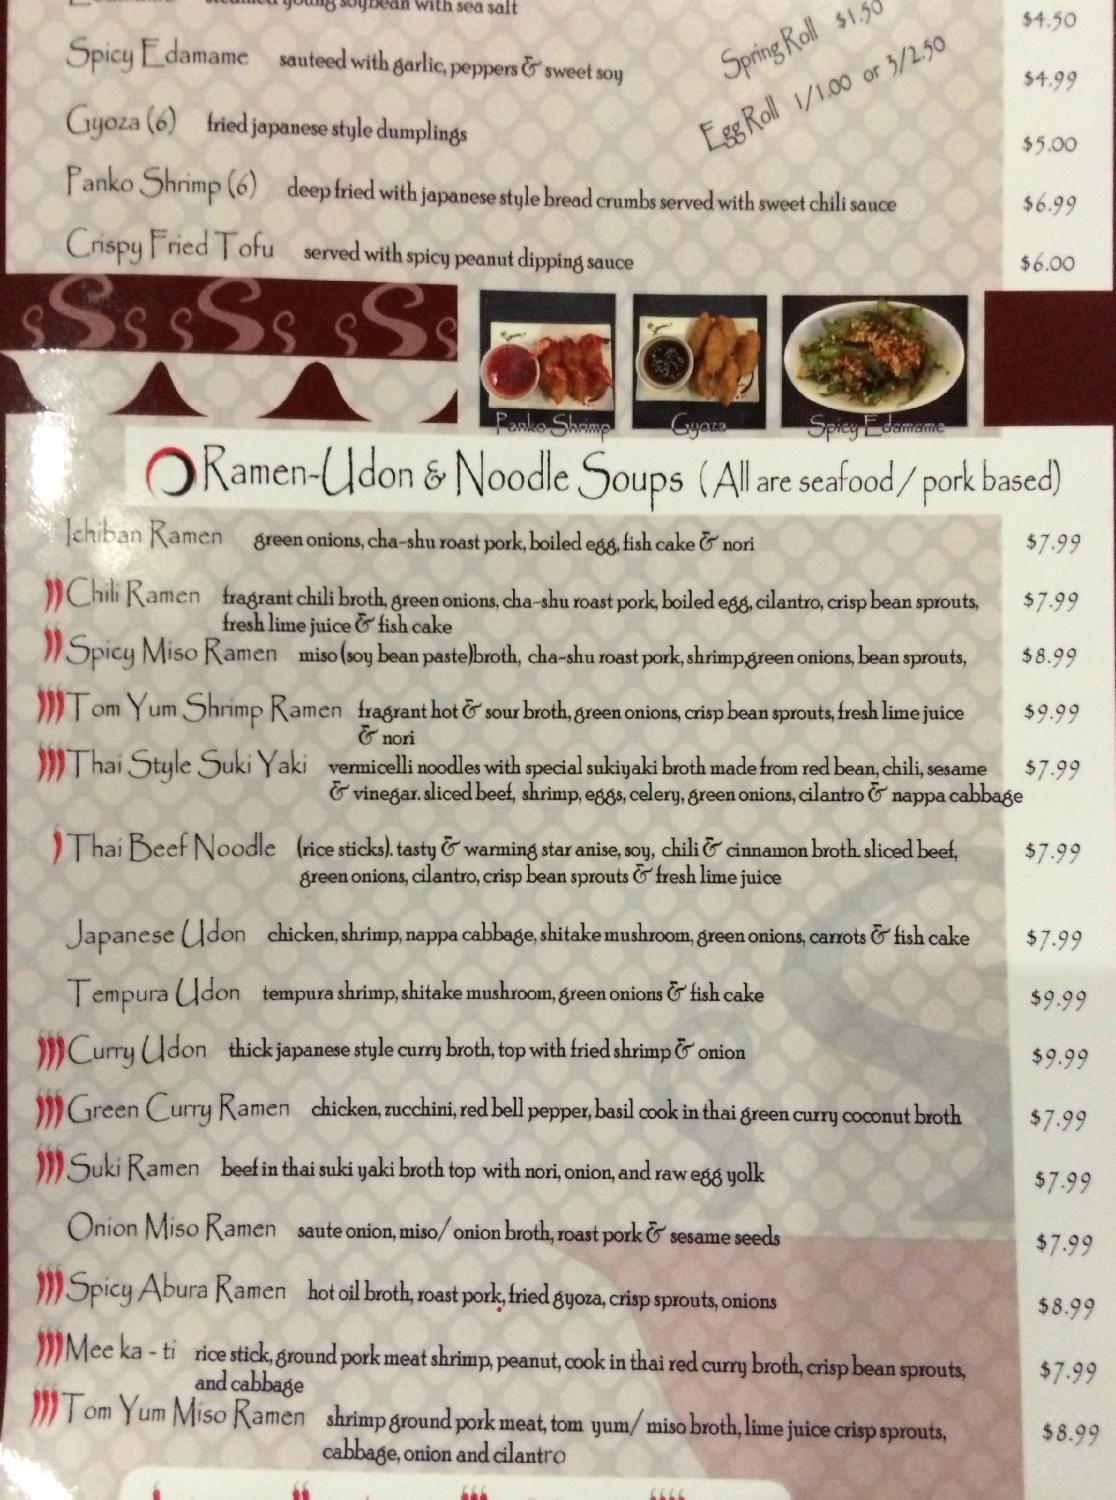 steamed young soybean with sea salt $4.50
Spring Roll $1.50
Spicy Edamame sauteed with garlic, peppers & sweet soy $4.99
Egg Roll 1/1.00 or 3/2.50
Gyoza (6) fried japanese style dumplings $5.00
Panko Shrimp (6) deep fried with japanese style bread crumbs served with sweet chili sauce $6.99
Crispy Fried Tofu served with spicy peanut dipping sauce $6.00
Panko Shrimp Gyoza Spicy Edamame
Ramen-Udon & Noodle Soups (All are seafood / pork based)
Ichiban Ramen green onions, cha-shu roast pork, boiled egg, fish cake & nori $7.99
Chili Ramen fragrant chili broth, green onions, cha-shu roast pork, boiled egg, cilantro, crisp bean sprouts, $7.99
fresh lime juice & fish cake
Spicy Miso Ramen miso(soy bean paste)broth, cha-shu roast pork, shrimp,green onions, bean sprouts, $8.99
Tom Yum Shrimp Ramen fragrant hot & sour broth, green onions, crisp bean sprouts, fresh lime juice $9.99
& nori
Thai Style Suki Yaki vermicelli noodles with special sukiyaki broth made from red bean, chili, sesame $7.99
& vinegar. sliced beef, shrimp, eggs, celery, green onions, cilantro & nappa cabbage
Thai Beef Noodle (rice sticks). tasty & warming star anise, soy, chili & cinnamon broth. sliced beef, $7.99
green onions, cilantro, crisp bean sprouts & fresh lime juice
Japanese Udon chicken, shrimp, nappa cabbage, shitake mushroom, green onions, carrots & fish cake $7.99
Tempura Udon tempura shrimp, shitake mushroom, green onions & fish cake $9.99
Curry Udon thick japanese style curry broth, top with fried shrimp & onion $9.99
Green Curry Ramen chicken, zucchini, red bell pepper, basil cook in thai green curry coconut broth $7.99
Suki Ramen beef in thai suki yaki broth top with nori, onion, and raw egg yolk $7.99
Onion Miso Ramen saute onion, miso/ onion broth, roast pork & sesame seeds $7.99
Spicy Abura Ramen hot oil broth, roast pork, fried gyoza, crisp sprouts, onions $8.99
Mee ka - ti rice stick, ground pork meat shrimp, peanut, cook in thai red curry broth, crisp bean sprouts, $7.99
and cabbage
Tom Yum Miso Ramen shrimp ground pork meat, tom yum/ miso broth, lime juice crisp sprouts, $8.99
cabbage, onion and cilantro